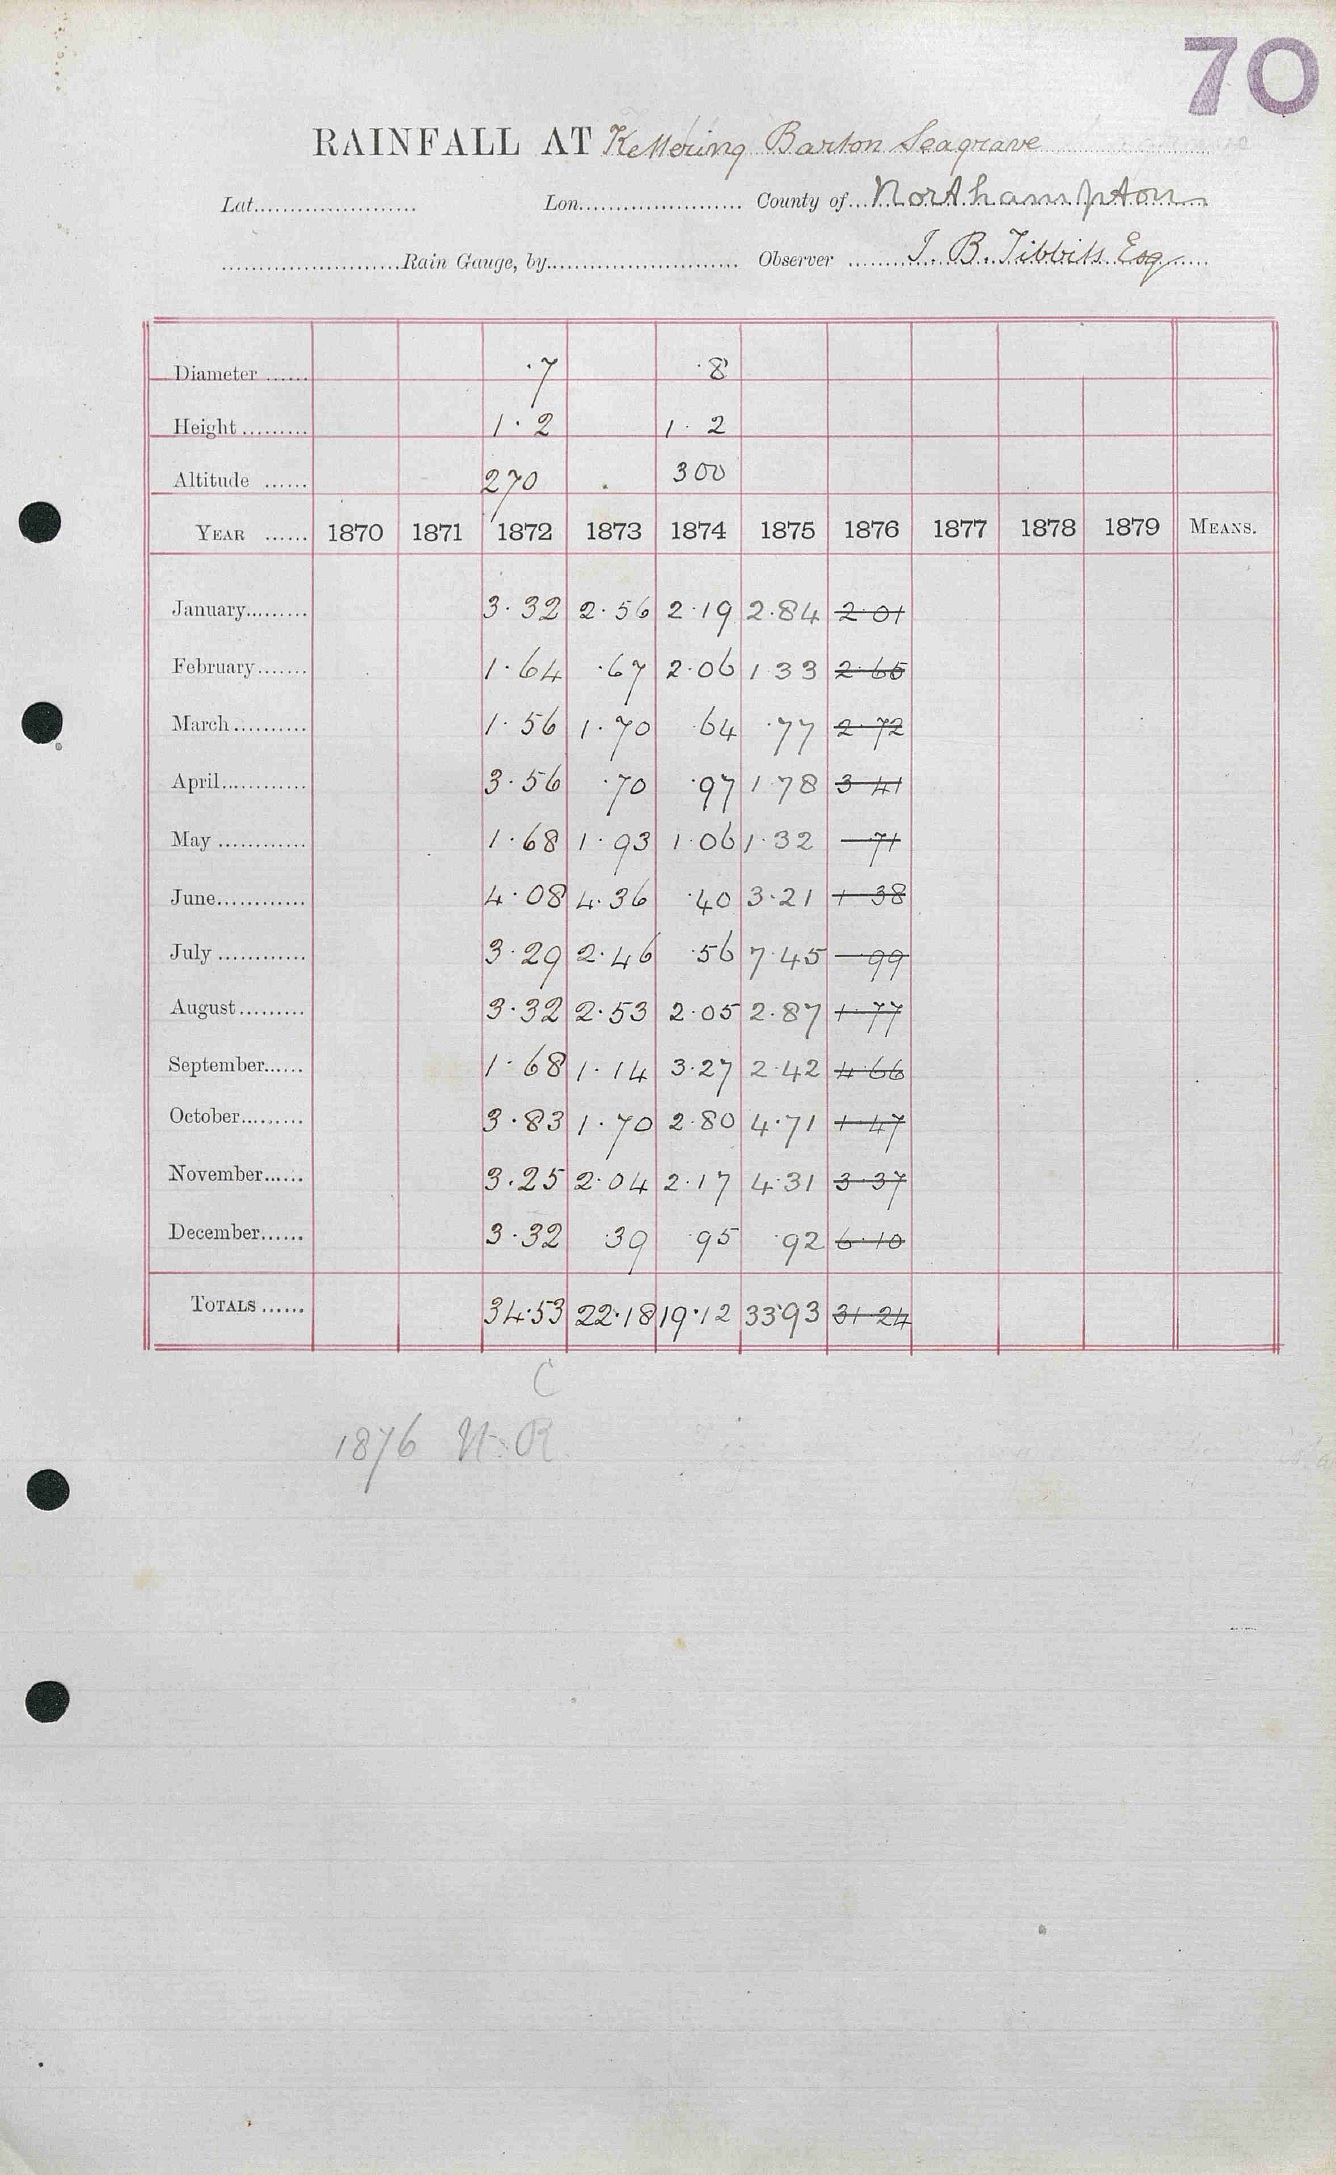 70
RAINFALL AT Kettering Barton Seagrave
Lat. Lon. County of Northampton
Rain Gauge, by Observer J. B. Tibbits Esq
Diameter ...... ·7 ·8
Height ......... 1·2 1·2
Altitude ...... 270 300
YEAR ...... 1870 1871 1872 1873 1874 1875 1876 1877 1878 1879 MEANS.
January......... 3·32 2·56 2·19 2·84 2·01
February....... 1·64 ·67 2·06 1·33 2·65
March.......... 1·56 1·70 ·64 ·77 2·72
April............ 3·56 ·70 ·97 1·78 3·41
May ............ 1·68 1·93 1·06 1·32 71
June............ 4·08 4·36 ·40 3·21 1·38
July ............ 3·29 2·46 ·56 7·45 99
August......... 3·32 2·53 2·05 2·87 1·77
September...... 1·68 1·14 3·27 2·42 4·66
October......... 3·83 1·70 2·80 4·71 1·47
November...... 3·25 2·04 2·17 4·31 3·37
December...... 3·32 ·39 ·95 ·92 6·10
TOTALS ...... 34·53 22·18 19·12 33·93 31·24
C
1876 N.R.